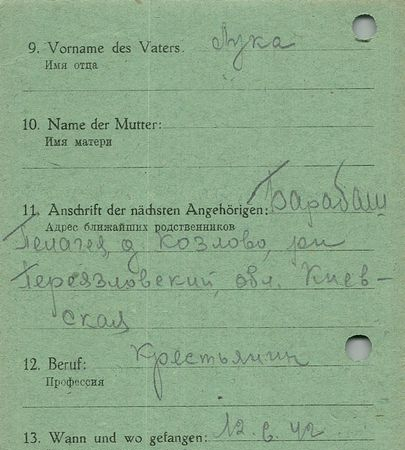 9. Vorname des Vaters. Лука
Имя отца
10. Name der Mutter:
Имя матери
11. Anschrift der nächsten Angehörigen: Барабаш
Адрес ближайших родственников
Пелагея, д Козлово, рн
Переязловский, обл. Киев-
ская
12. Beruf: Крестьянин
Профессия
13. Wann und wo gefangen: 12. 6. 42